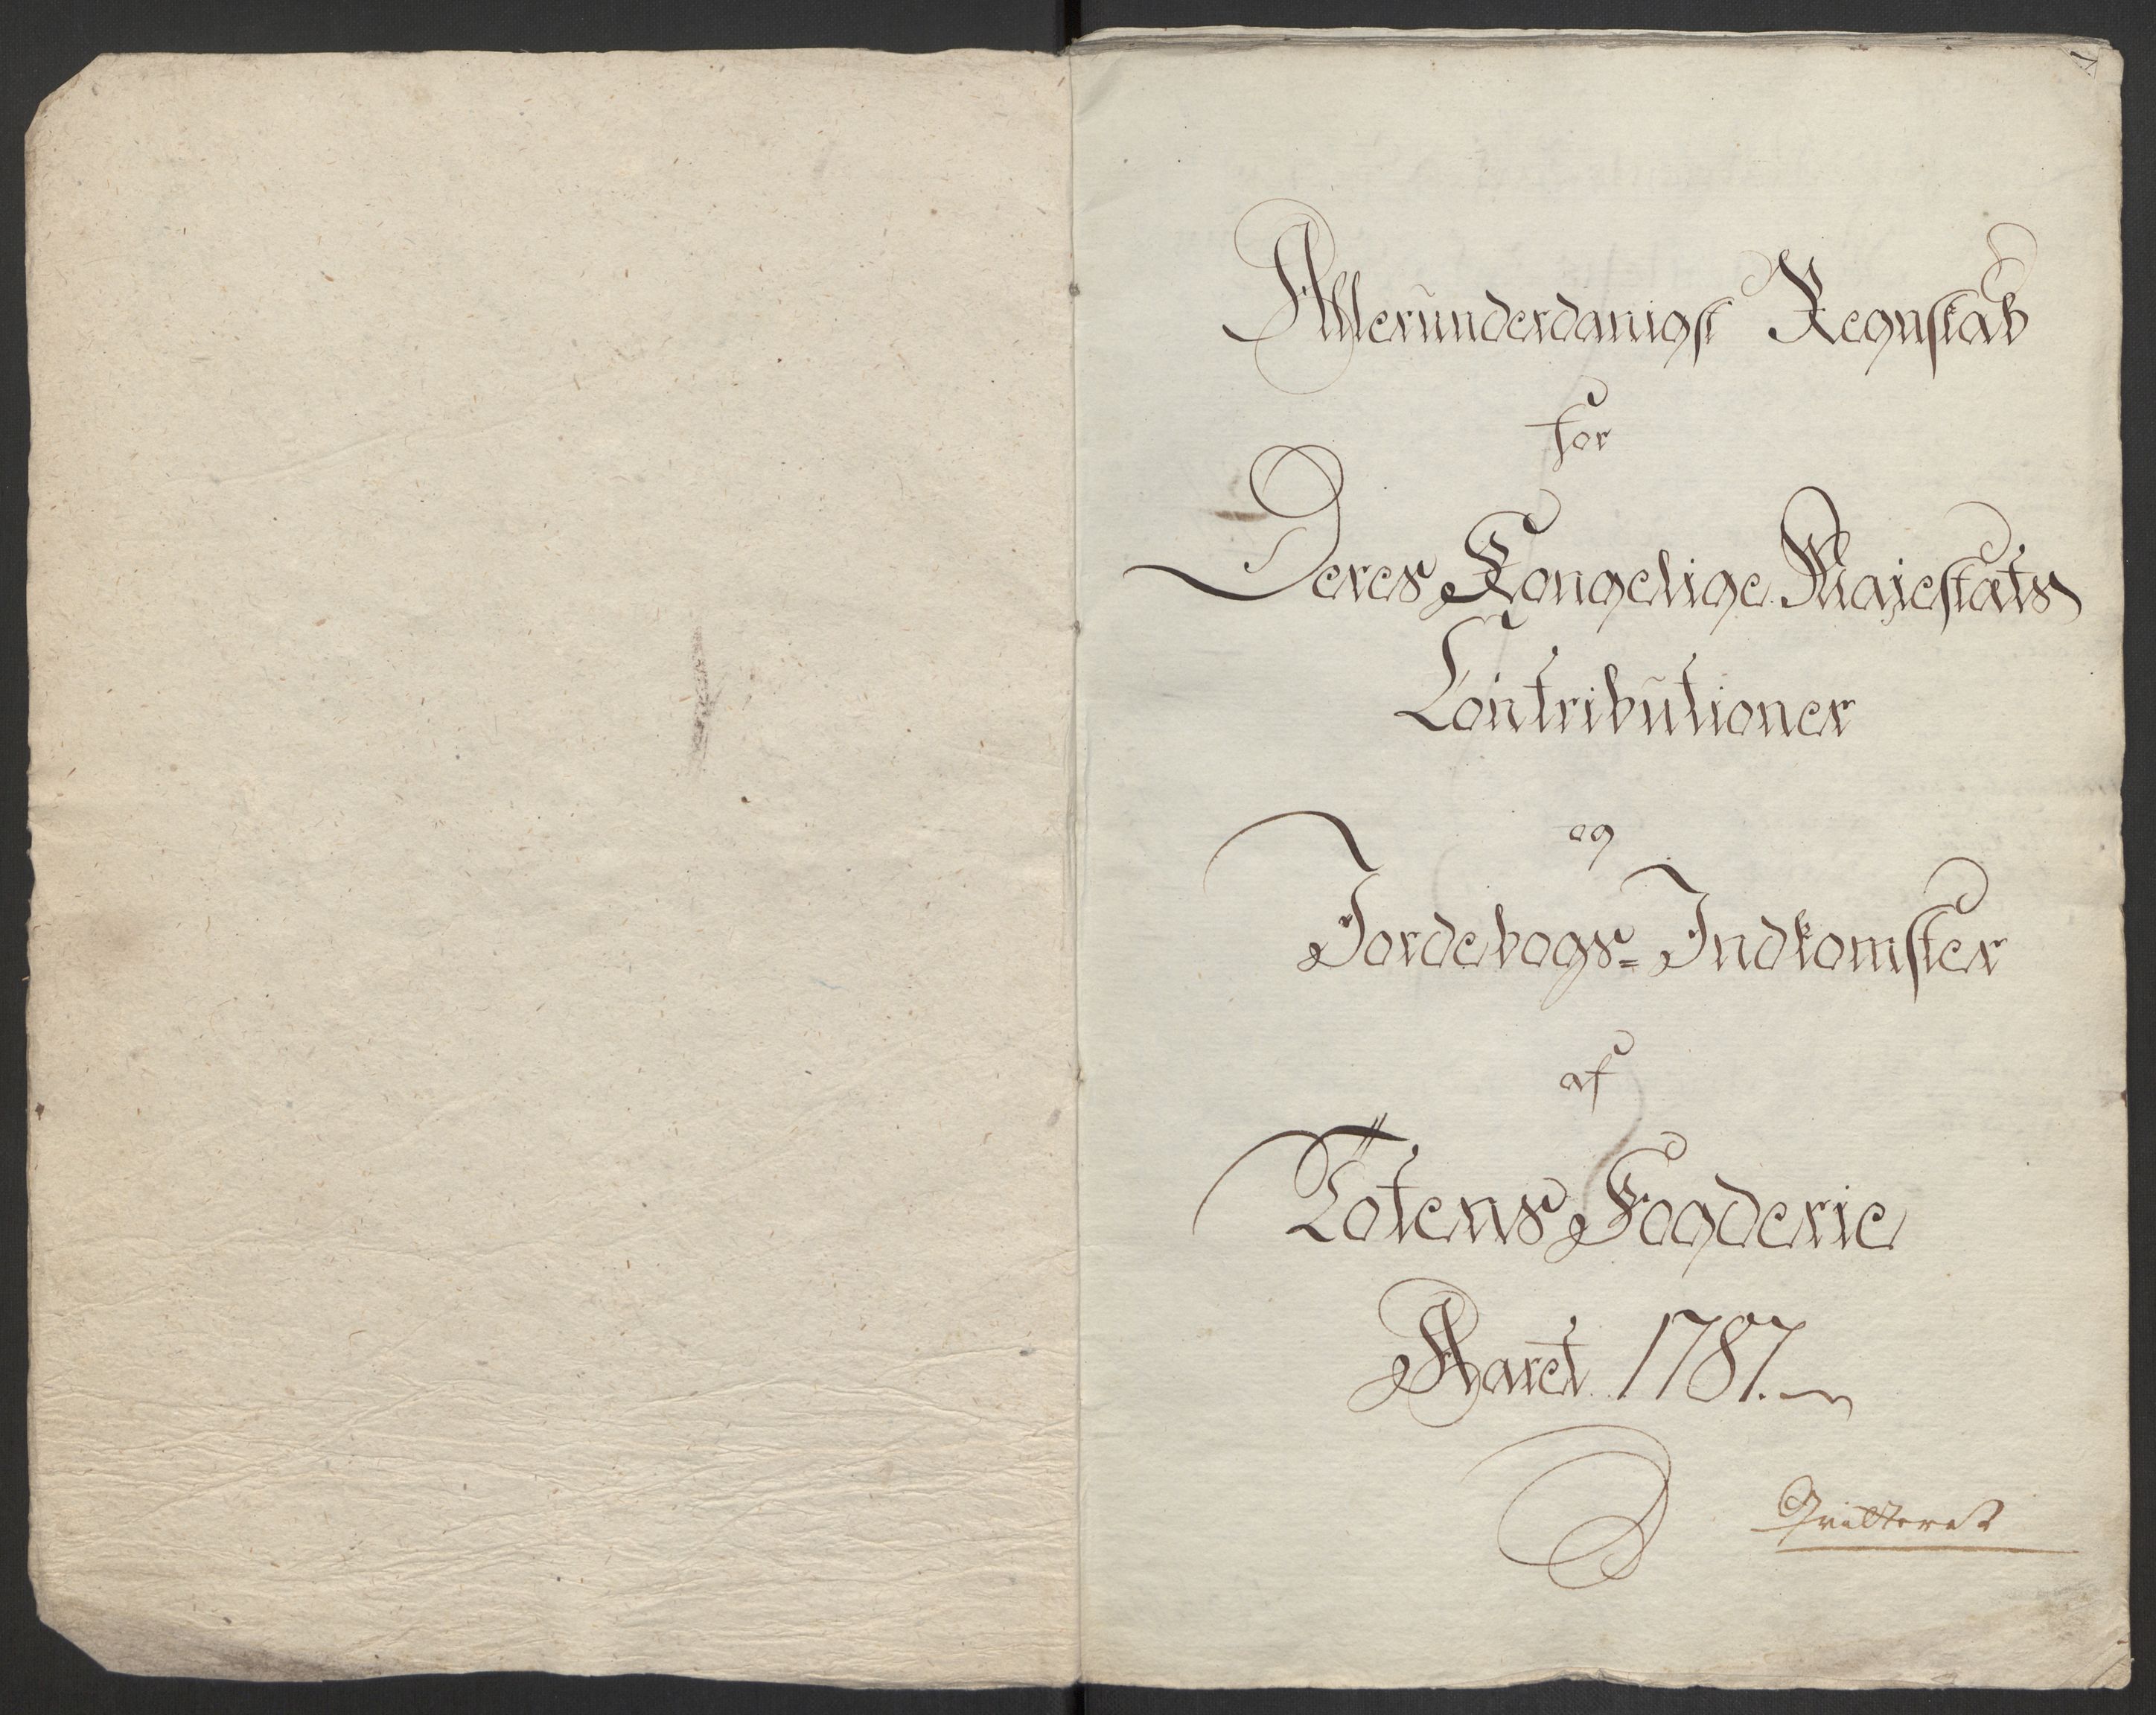 Allerunderdanigst Regnskab
for
Deres Kongelige Majestæts
Contributioner
og
Jordebogs= Indkomster
af
Totens Fogderie
Aaret 1787.
Qvitteret